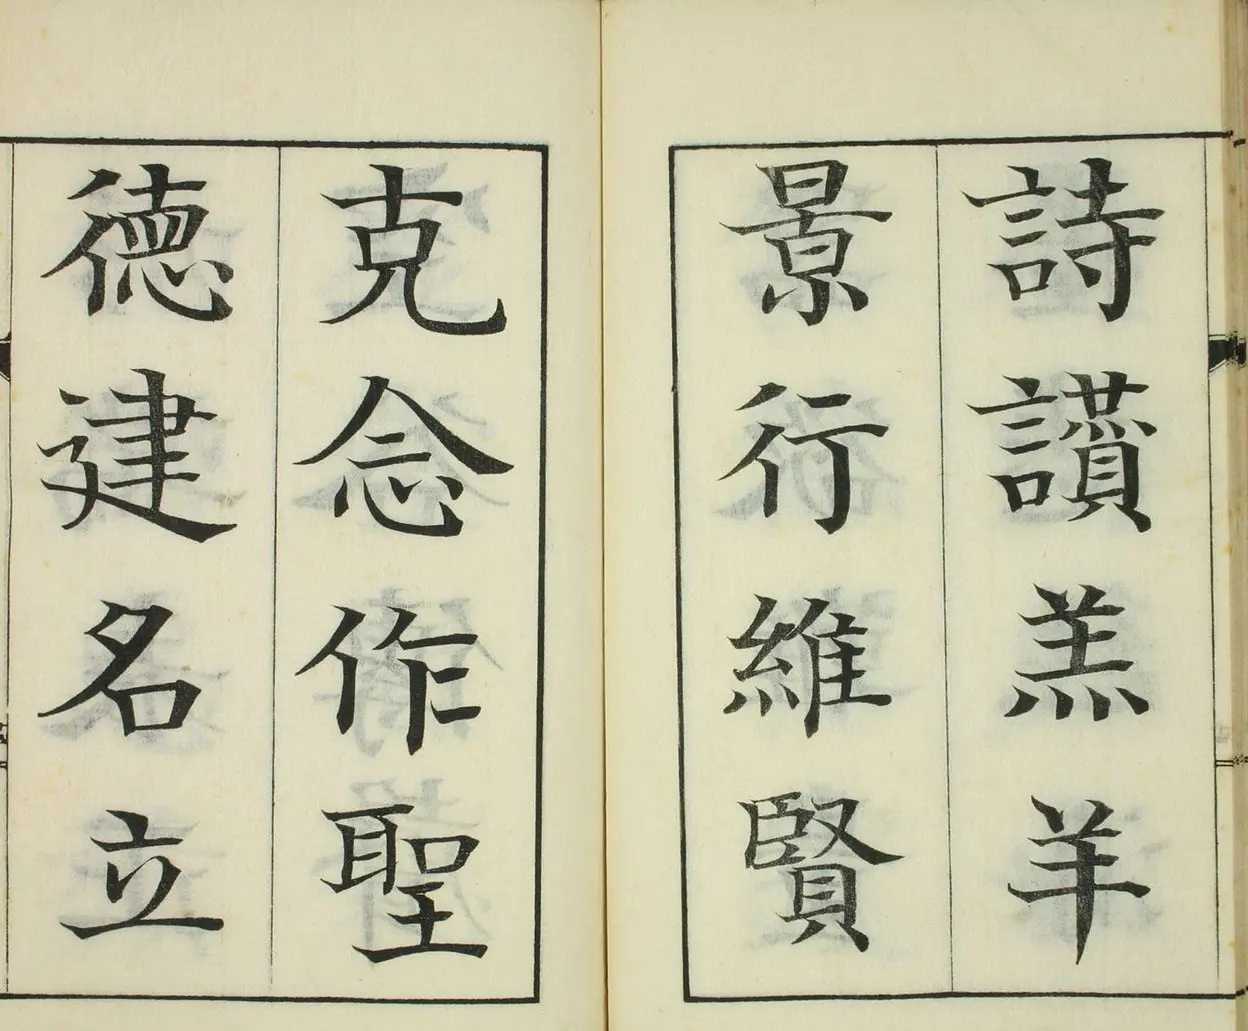 詩讚羔羊
景行維賢
克念作聖
德建名立